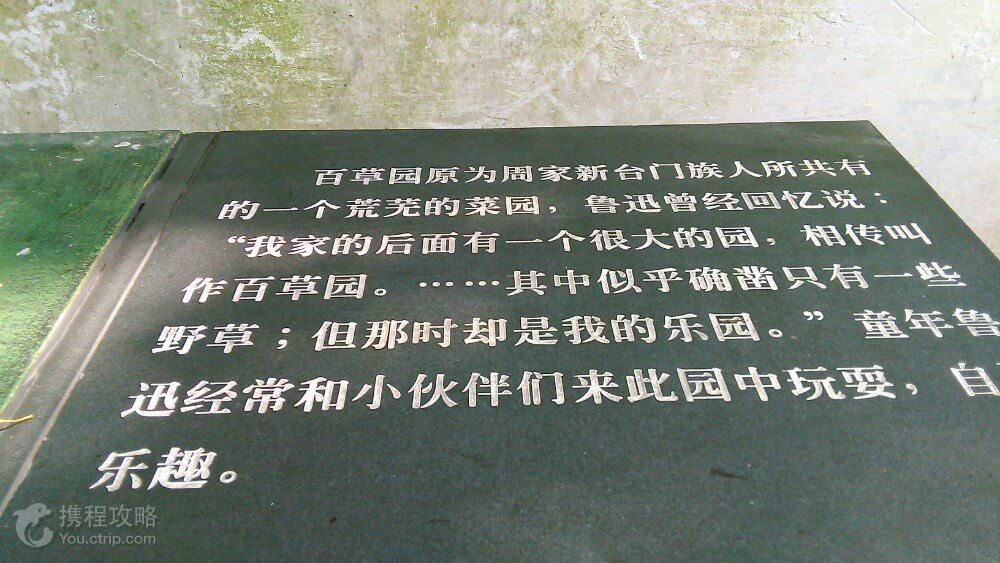 百草园原为周家新台门族人所共有
的一个荒芜的菜园，鲁迅曾经回忆说：
“我家的后面有一个很大的园，相传叫
作百草园。……其中似乎确凿只有一些
野草；但那时却是我的乐园。”童年鲁
迅经常和小伙伴们来此园中玩耍，自
乐趣。
携程攻略
You.ctrip.com